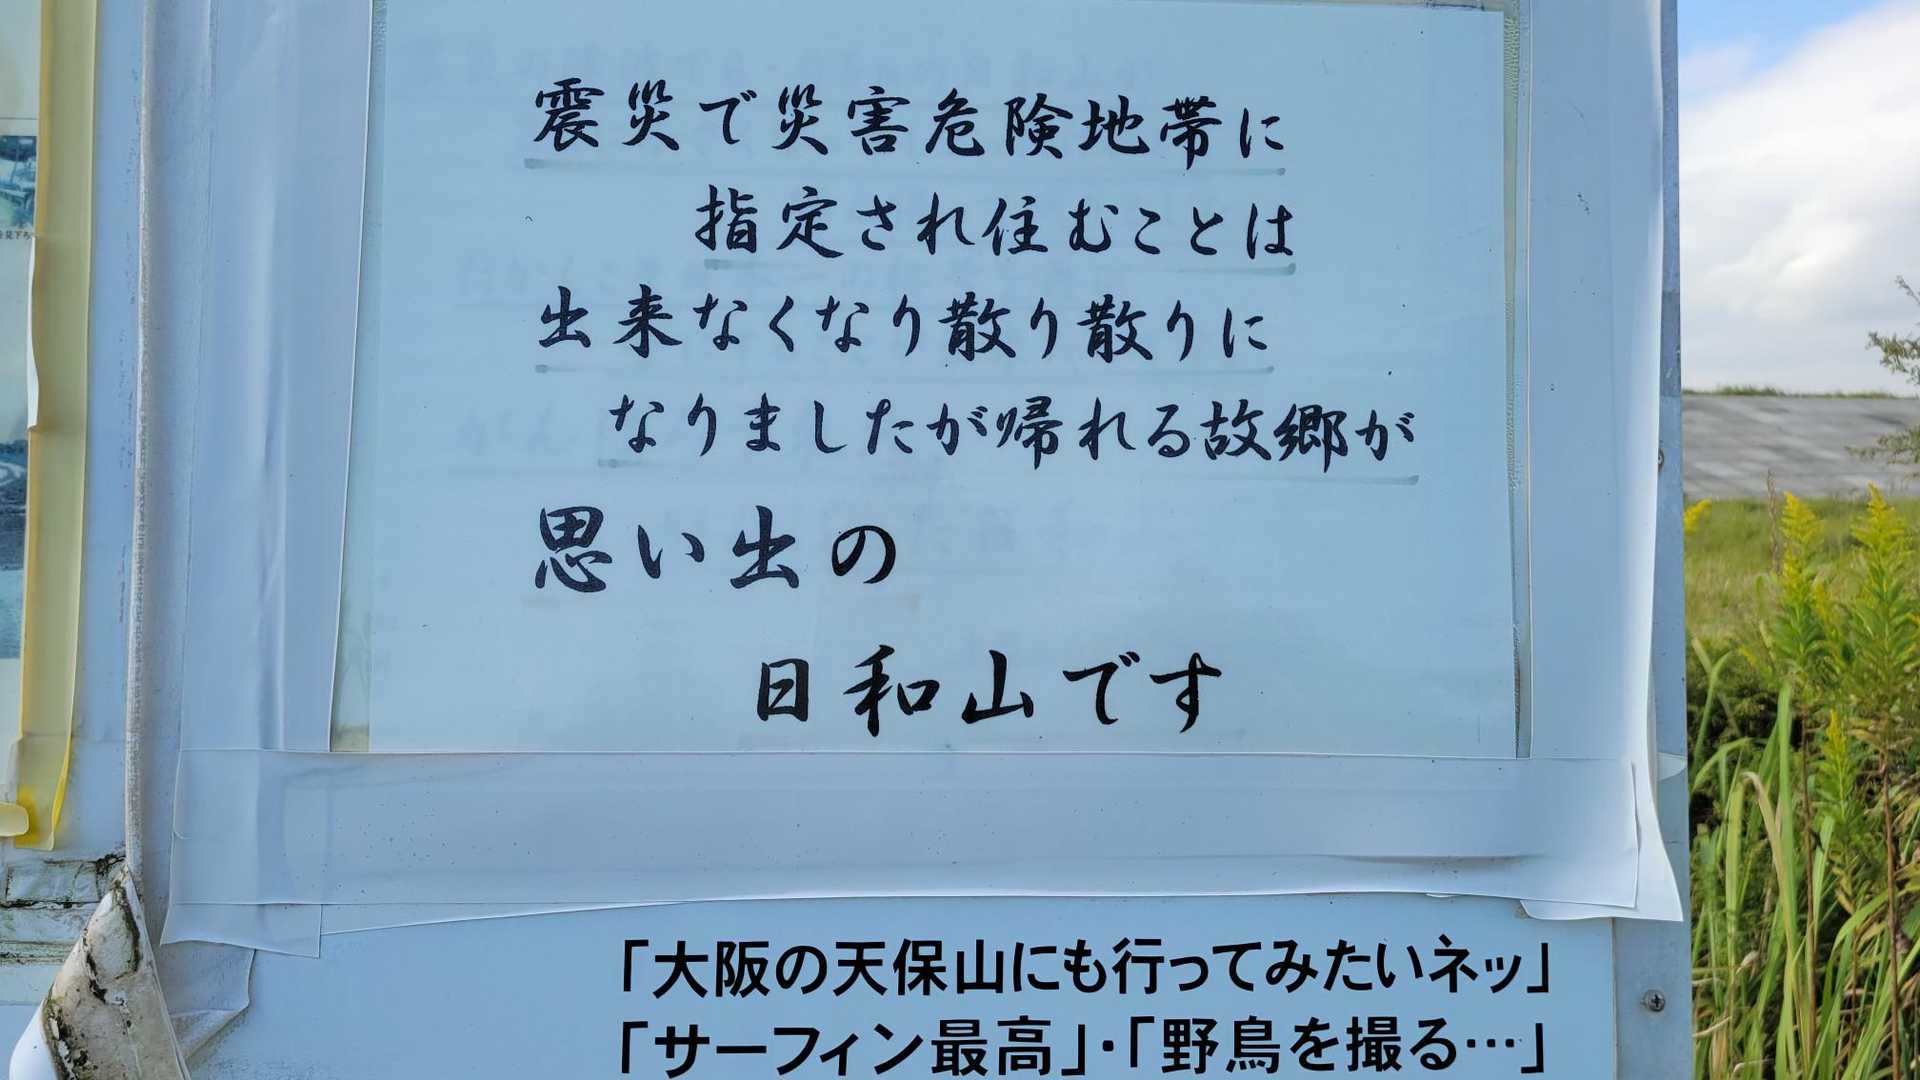 震災で災害危険地帯に
指定され住むことは
出来なくなり散り散りに
なりましたが帰れる故郷が
思い出の
日和山です
「大阪の天保山にも行ってみたいネッ」
「サーフィン最高」・「野鳥を撮る…」